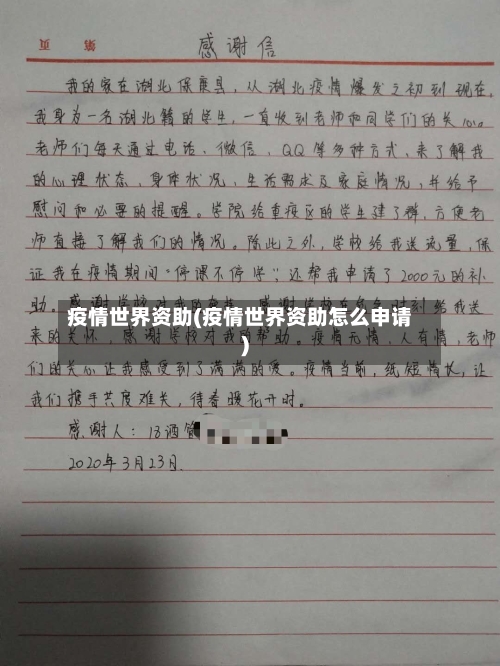 页 第
感谢信
我的家在湖北保康县，从湖北疫情爆发之初到现在，
我身为一名湖北籍的学生，一直收到老师和同学们的关心。
老师们每天通过电话、微信、QQ等多种方式，来了解我
的心理状态，身体状况，生活需求及家庭情况，并给予
慰问和必要的提醒。学院给重疫区的学生建了群，方便老
师直接了解我们的情况。除此之外，学校给我送流量，保
证我在疫情期间“停课不停学”；还帮我申请了2000元的补
助。感谢学校对我的
给我送
疫情世界资助(疫情世界资助怎么申请
)
来的关怀，感谢学校对我的帮助。疫情无情，人有情，老师
们的关心让我感受到了满满的爱。疫情当前，纸短情长，让
我们携手共度难关，待春暖花开时。
感谢人：18酒管
2020年3月23日